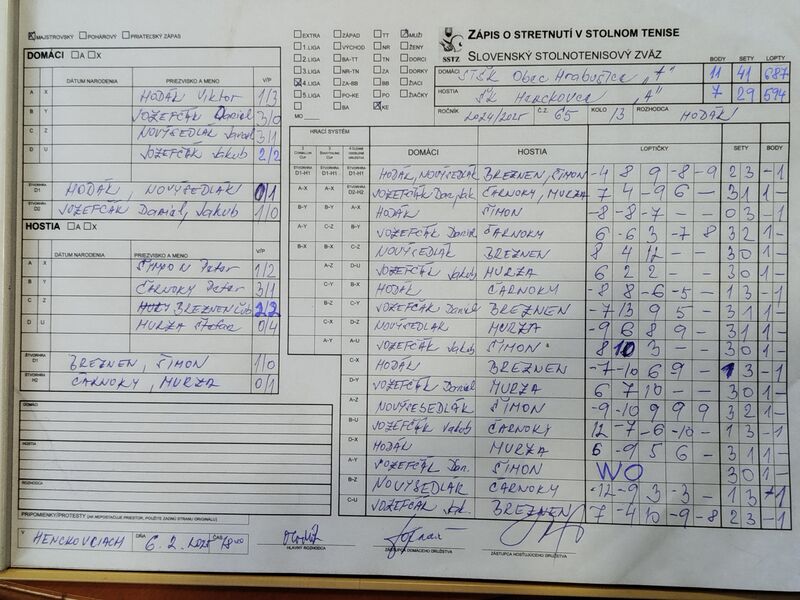 MAJSTROVSKÝ POHÁROVÝ PRIATEĽSKÝ ZÁPAS
ZÁPIS O STRETNUTÍ V STOLNOM TENISE
SSTZ SLOVENSKÝ STOLNOTENISOVÝ ZVÄZ
EXTRA ZÁPAD TT MUŽI
1.LIGA VÝCHOD NR ŽENY
2.LIGA BA-TT TN DORCI
3.LIGA NR-TN ZA DORKY
4.LIGA ZA-BB BB ŽIACI
5.LIGA PO-KE PO ŽIAČKY
BA KE
MO
BODY SETY LOPTY
DOMÁCI STŠK Obec Hrabušice "A" 11 41 687
HOSTIA ŠK Henckovce "A" 7 29 594
ROČNÍK 2024/2025 Č.Z. 65 KOLO 13 ROZHODCA HODÁK
DOMÁCI A X
DÁTUM NARODENIA PRIEZVISKO A MENO V/P
A X HODÁK Viktor 1/3
B Y JOZEFČÁK Daniel 3/0
C Z NOVYSEDLÁK 3/1
D U JOZEFČÁK Jakub 2/2
ŠTVORHRA D1 HODÁK, NOVYSEDLÁK 0/1
D2 JOZEFČÁK Daniel, Jakub 1/0
HOSTIA A X
DÁTUM NARODENIA PRIEZVISKO A MENO V/P
A X ŠIMON Peter 1/2
B Y ČARNOKY Peter 3/1
C Z BREZNEN 2/2
D U MURZA Štefan 0/4
ŠTVORHRA D1 BREZNEN, ŠIMON 1/0
ŠTVORHRA H2 ČARNOKY, MURZA 0/1
HRACÍ SYSTÉM DOMÁCI HOSTIA LOPTIČKY SETY BODY
HODÁK, NOVYSEDLÁK BREZNEN, ŠIMON -4 8 9 -8 -9 2 3 -1
JOZEFČÁK ČARNOKY, MURZA 7 4 -9 6 - 3 1 1-
HODÁK ŠIMON -8 -8 -7 - - 0 3 -1
JOZEFČÁK Daniel ČARNOKY 6 -6 3 -7 8 3 2 1-
NOVYSEDLÁK BREZNEN 8 4 12 - - 3 0 1-
JOZEFČÁK Jakub MURZA 6 2 2 - - 3 0 1-
HODÁK ČARNOKY -8 8 -6 -5 - 1 3 -1
JOZEFČÁK Daniel BREZNEN -7 13 9 5 - 3 1 1-
NOVYSEDLÁK MURZA -9 6 8 9 - 3 1 1-
JOZEFČÁK Jakub ŠIMON 8 10 3 - - 3 0 1-
HODÁK BREZNEN -7 -10 6 9 - 1 3 -1
JOZEFČÁK Daniel MURZA 6 7 10 - - 3 0 1-
NOVYSEDLÁK ŠIMON -9 -10 9 9 9 3 2 1-
JOZEFČÁK Jakub ČARNOKY 12 -7 -6 -10 - 1 3 -1
HODÁK MURZA 6 -9 5 6 - 3 1 1-
JOZEFČÁK Dan. ŠIMON WO 3 0 1-
NOVYSEDLÁK ČARNOKY -12 -9 3 -3 - 1 3 -1
JOZEFČÁK BREZNEN 7 -4 10 -9 -8 2 3 -1
DOMÁCI
HOSTIA
ROZHODCA
PRIPOMIENKY/PROTESTY (AK NEPOSTAČUJE PRIESTOR, POUŽITE ZADNÚ STRANU ORIGINÁLU)
V HENCKOVCIACH DŇA 6.2.2025 ČAS
HLAVNÝ ROZHODCA ZÁSTUPCA DOMÁCEHO DRUŽSTVA ZÁSTUPCA HOSŤUJÚCEHO DRUŽSTVA